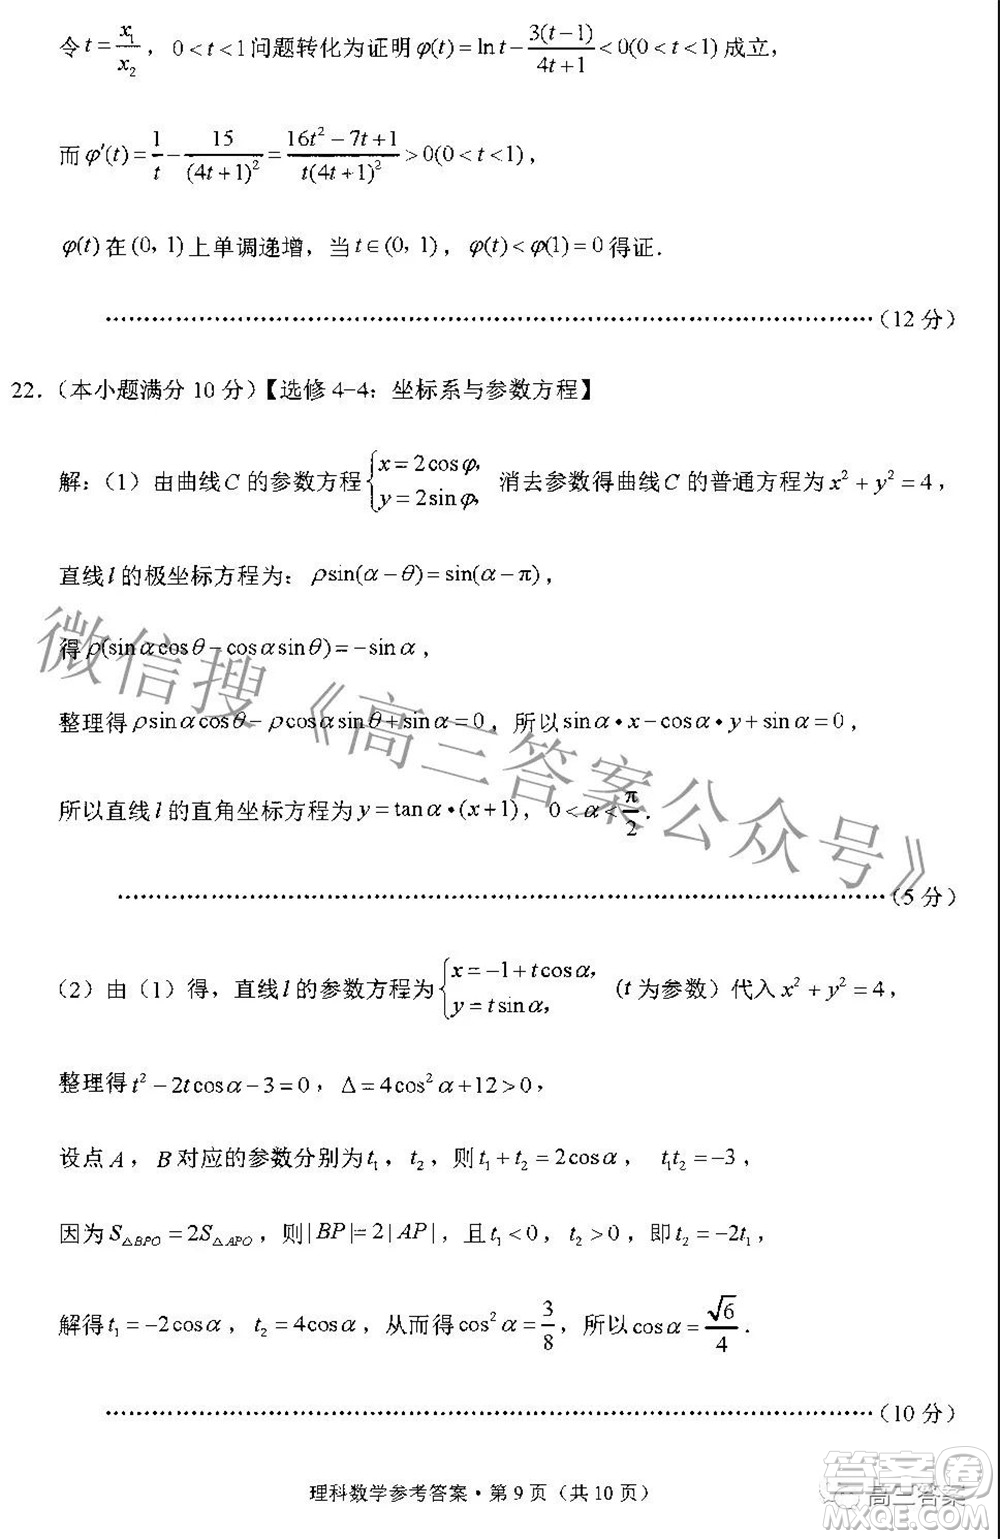 令 t = x₁/x₂，0 < t < 1 问题转化为证明 φ(t) = ln t − 3(t−1)/(4t+1) < 0(0 < t < 1) 成立，
而 φ′(t) = 1/t − 15/(4t+1)² = (16t² − 7t + 1)/(t(4t+1)²) > 0(0 < t < 1)，
φ(t) 在 (0，1) 上单调递增，当 t ∈ (0，1)，φ(t) < φ(1) = 0 得证．
……………………………………………………………（12 分）
22．（本小题满分 10 分）【选修 4-4：坐标系与参数方程】
解：（1）由曲线 C 的参数方程 {x = 2cosφ， y = 2sinφ， 消去参数得曲线 C 的普通方程为 x² + y² = 4，
直线 l 的极坐标方程为：ρsin(α − θ) = sin(α − π)，
得 ρ(sinαcosθ − cosαsinθ) = −sinα，
整理得 ρsinαcosθ − ρcosαsinθ + sinα = 0，所以 sinα•x − cosα•y + sinα = 0，
所以直线 l 的直角坐标方程为 y = tanα•(x+1)，0 < α < π/2．
……………………………………………………………（5 分）
（2）由（1）得，直线 l 的参数方程为 {x = −1 + tcosα， y = tsinα， （t 为参数）代入 x² + y² = 4，
整理得 t² − 2tcosα − 3 = 0，Δ = 4cos²α + 12 > 0，
设点 A，B 对应的参数分别为 t₁，t₂，则 t₁ + t₂ = 2cosα，t₁t₂ = −3，
因为 S△BPO = 2S△APO，则 |BP| = 2|AP|，且 t₁ < 0，t₂ > 0，即 t₂ = −2t₁，
解得 t₁ = −2cosα，t₂ = 4cosα，从而得 cos²α = 3/8，所以 cosα = √6/4．
……………………………………………………………（10 分）
理科数学参考答案·第 9 页（共 10 页）
微信搜《高三答案公众号》
答案圈
高三答案
MXQE.COM